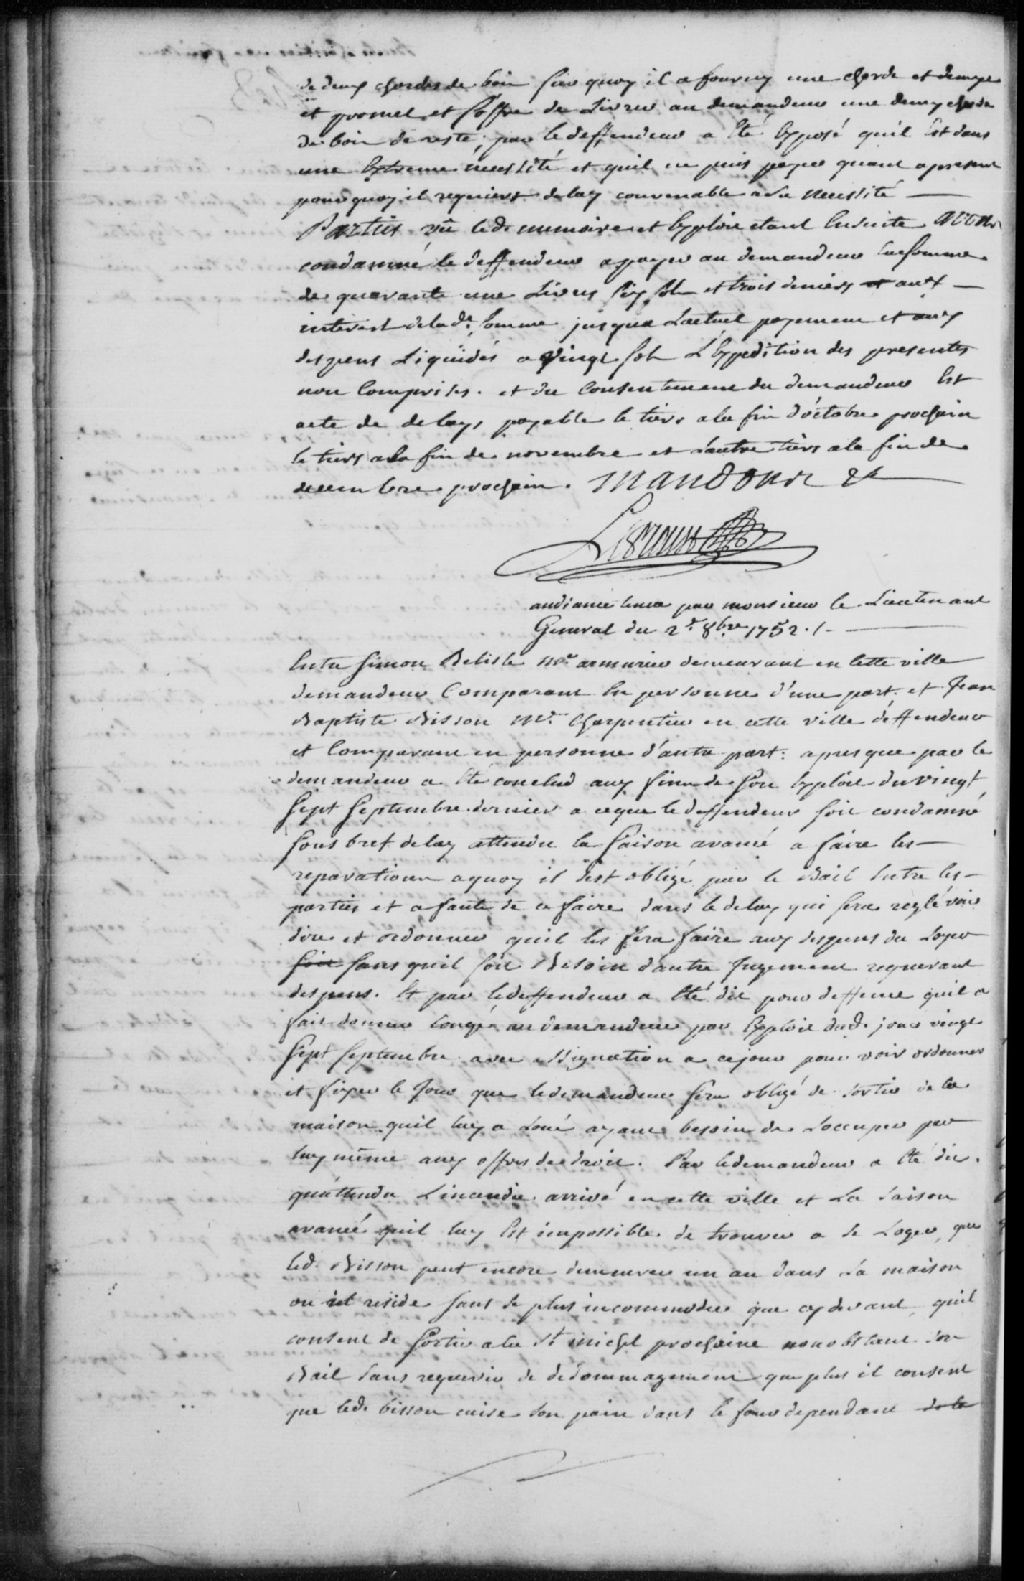 de deux chordes de bois sur quoy il a fourny une chorde et demye
et promet et s'offre de Livrer au demandeur une demy chorde
de bois de reste, par le deffendeur a Eté Exposé quil Est dans
une Extreme necessité et quil ne puis payer quant apresent
pourquoy il requiert delay convenable a sa necessité
Parties vû led. memoire et Exploit etant Ensuite avons
condamné le deffendeur a payer au demandeur la somme
de quarante une Livres six sols et trois deniers aux
interest de lad. somme jusqua Lactuel payement et aux
despens Liquidés a vingt sols L'Expedition des presentes
non Comprises. et du Consentement du demandeur Est
acte de delays payable le tiers a la fin d'octobre prochain
le tiers a la fin de novembre et l'autre tiers a la fin de
decembre prochain. Mandons &a
audiance tenue par monsieur le Lieutenant
General du 2d. 8bre 1752 ./.
Entre Simon Belisle Me armurier demeurant en Cette ville
demandeur Comparant En personne d'une part. et Jean
Baptiste Bisson Me. Charpentier en cette ville deffendeur
et Comparant en personne d'autre part: apres que par le
demandeur a Eté conclud aux fins de son Exploit du vingt
sept septembre dernier a ceque le deffendeur soit condamné
sous bref delay attendu la saison avancé a faire les
reparations aquoy il s'est obligé par le Bail Entre les
parties et a faute de ce faire dans le delay qui sera reglé voir
dire et ordonner quil les fera faire aux despens du Loyer
soit sans quil soit Besoin d'autre Jugement requerant
despens. Et par le deffendeur a Eté dit pour deffense quil a
fait donner Congé au demandeur par Exploit dud. jour vingt
sept septembre avec assignation a cejour pour voir ordonner
et fixer le Jour que le demandeur sera obligé de sortir de la
maison quil luy a Loué ayant besoin de Loccuper par
luy même aux offres de droit. Par le demandeur a Eté dit
quattendu L'incendie arrivé en cette ville et La saison
avancé quil luy Est impossible de trouver a se Loger, que
led. Bisson peut encore demeurer un an dans La maison
ou il reside sans se plus incommoder que cy devant quil
consent de sortir a la St michel prochaine nonobstant son
Bail sans requerir de dedommagement que plus il consent
que led. bisson cuise son pain dans le four dependant de la